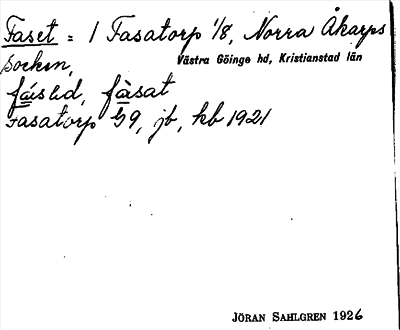 Faset = 1 Fasatorp 1/8, Norra Åkarps
socken, Västra Göinge hd, Kristianstad län
fásed, fàsat
Fasatorp 59, jb, kb 1921
JÖRAN SAHLGREN 1926